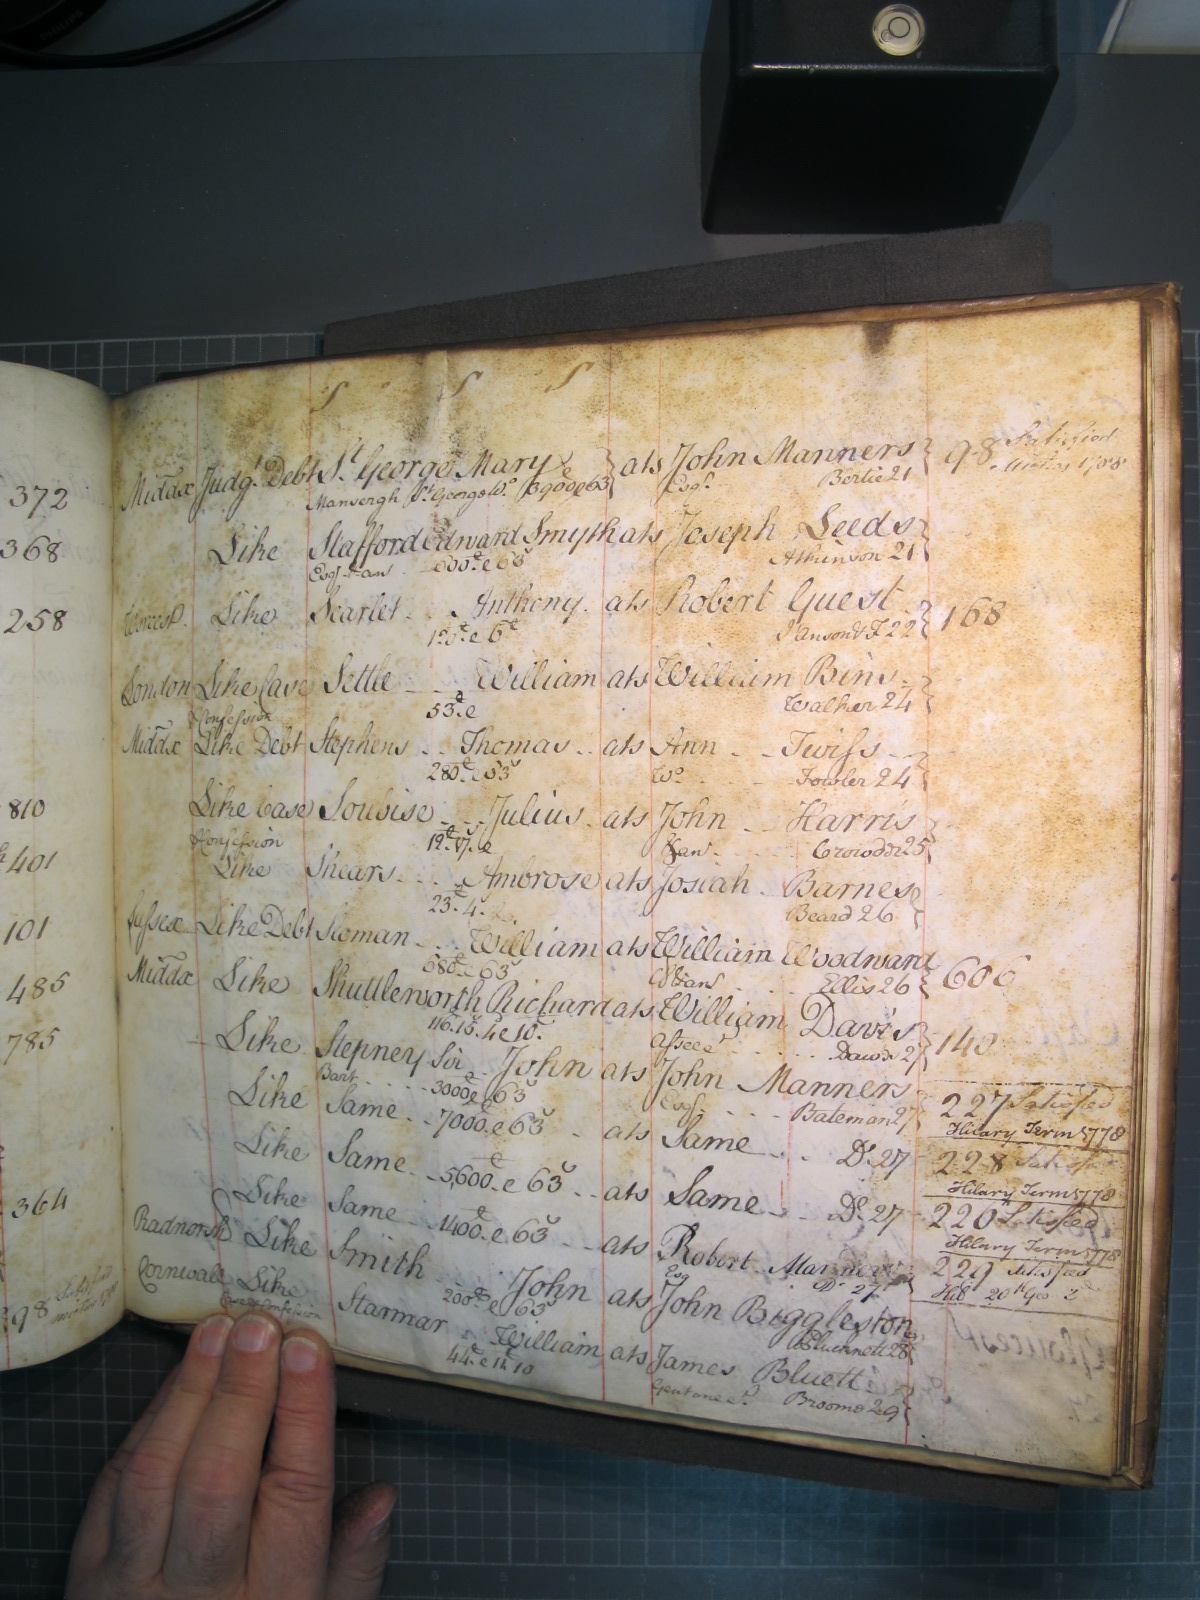 S S S
Middx Judgt. Debt St. George Mary } ats John Manners } 98 Satisfied
Mansergh St. George Wo. 3900 & 63s Esqr. Bertie 21
Like Stafford Edward Smyth ats Joseph Leeds }
Esqr. 600 & 63s Atkinson 21
Like Scarlet Anthony ats Robert Guest } 168
I'anson & F 22
London Like Case Settle William ats William Bins }
Confession 53 & Walker 24
Middx Like Debt Stephens Thomas ats Ann Twiss
280 & 63s Wo. Fowler 24
Like Case Soubise Julius ats John Harris }
Confession 19. 17. & Crowder 25
Like Shears Ambrose ats Josiah Barnes
23. 4. Beard 26
Sussex Like Debt Sloman William ats William Woodward } 606
680 & 63s Ellis 26
Middx Like Shuttleworth Richard ats William Davis } 140
116. 15. 4 & 10s. Assee Dawes 27
Like Stepney Sir John ats John Manners 227 Satisfied
Bart. 3000 & 63s Esqr. Bateman 27 Hilary Term 1778
Like Same 7000 & 63s ats Same Do. 27 228
Hilary Term 1778
Like Same 5,600 & 63s ats Same Do. 27 220 Satisfied
Hilary Term 1778
Like Same 1400 & 63s ats Robert Manners 229 Satisfied
Esq Do. 27 Hil 20th Geo 3d
Radnorsh Like Smith John ats John Biggleston
200 & 63s 28
Cornwall Like Stannar William ats James Bluett
Confession 44 & 11 10 Gent one &c. Broome 29
372
368
258
810
401
101
485
785
364
98